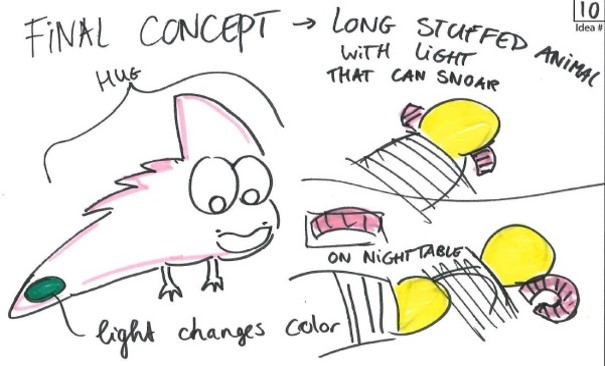 FINAL CONCEPT → LONG STUFFED ANIMAL
WITH LIGHT
THAT CAN SNOAR
10
Idea #
HUG
ON NIGHT TABLE
light changes color